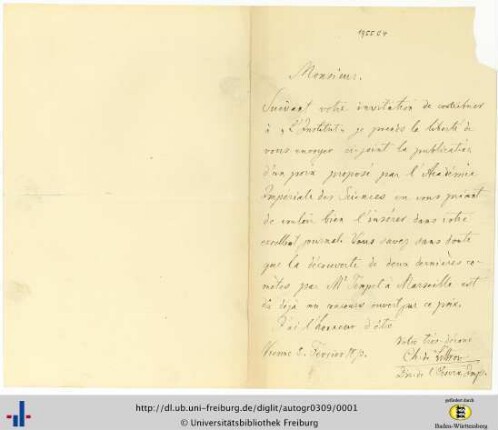 1955 04
Monsieur.
Suivant votre invitation de contribuer
à „L'Institut" je prends la liberté de
vous envoyer ci-joint la publication
d'un prix proposé par l'Académie
Impériale des Sciences en vous priant
de vouloir bien l'insérer dans votre
excellent journal. Vous savez sans doute
que la découverte de deux dernières co-
mètes par Mr Tempel à Marseille est
déjà au concours ouvert par ce prix.
J'ai l'honneur d'être
Votre très dévoué
Vienne Février
Ch. de Littrow
Dir. de l'Observ. Imp.
http://dl.ub.uni-freiburg.de/diglit/autogr0309/0001
© Universitätsbibliothek Freiburg
gefördert durch
Baden-Württemberg